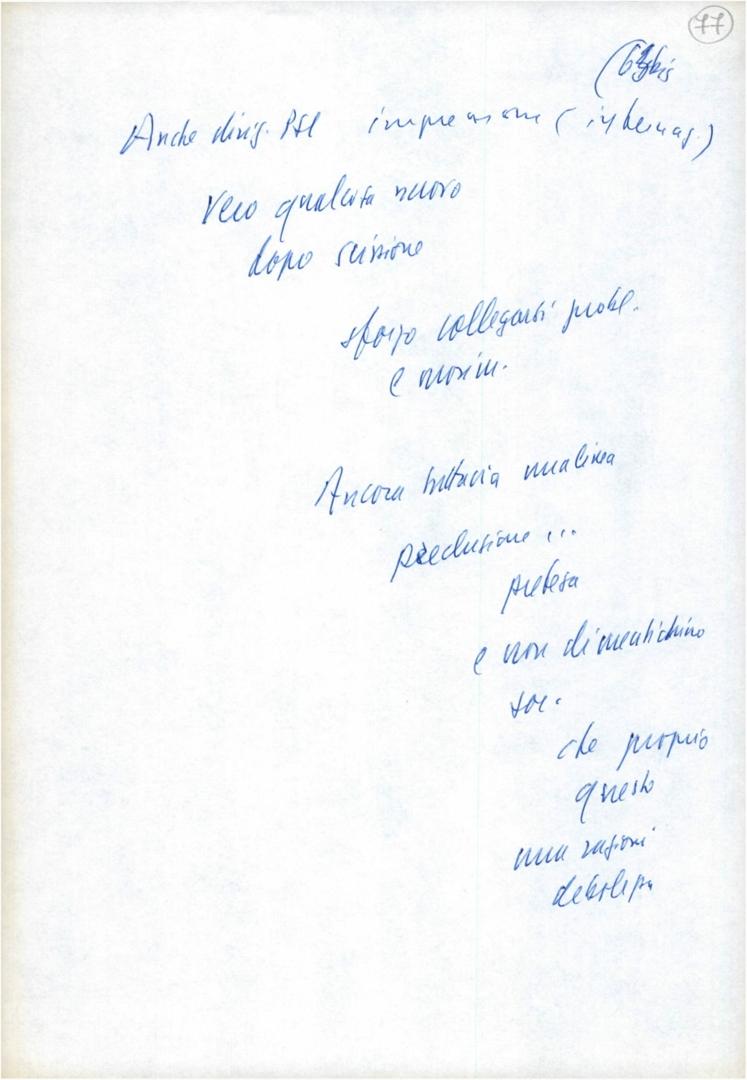 77
(63bis
Anche dirig. PSI impressione (
vero qualcosa nuovo
dopo scissione
sforzo collegarsi probl.
e movim.
Ancora tuttavia una linea
preclusione ...
pretesa
e non dimentichino
soc.
che proprio
questo
una ragioni
debolezza